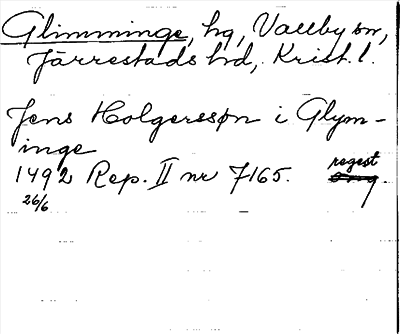 Glimminge, hg, Vallby sn,
Järrestads hd, Krist. l.
Jens Holgerssøn i Glym-
inge
1492 Rep. II nr 7165. regest
26/6